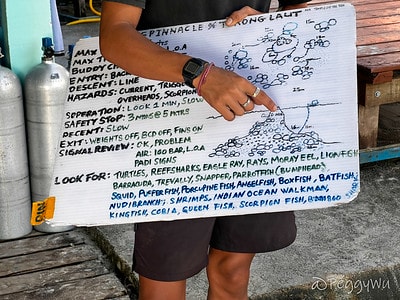 PINNACLE % TKONG LAUT
MAX
MAX T
BUDDY CH L.O.A
ENTRY: BAC
DESCENT: LINE
HAZARDS: CURRENT, TRIGG
OVERHEADS, SCORPION
SEPERATION: LOOK 1 MIN, SLOW
SAFETY STOP: 3 MINS @ 5 MTRS
DECENT: SLOW
EXIT: WEIGHTS OFF, BCD OFF, FINS ON
SIGNAL REVIEW: OK, PROBLEM
AIR: 100 BAR, L.O.A
PADI SIGNS
LOOK FOR: TURTLES, REEFSHARKS, EAGLE RAY, RAYS, MORAY EEL, LIONFISH
BARRACUDA, TREVALLY, SNAPPER, PARROTFISH (BUMPHEAD)
SQUID, PUFFERFISH, PORCUPINE FISH, ANGELFISH, BOXFISH, BATFISH,
NUDIBRANCH, SHRIMPS, INDIAN OCEAN WALKMAN,
KINGFISH, COBIA, QUEEN FISH, SCORPION FISH,
@PeggyWu